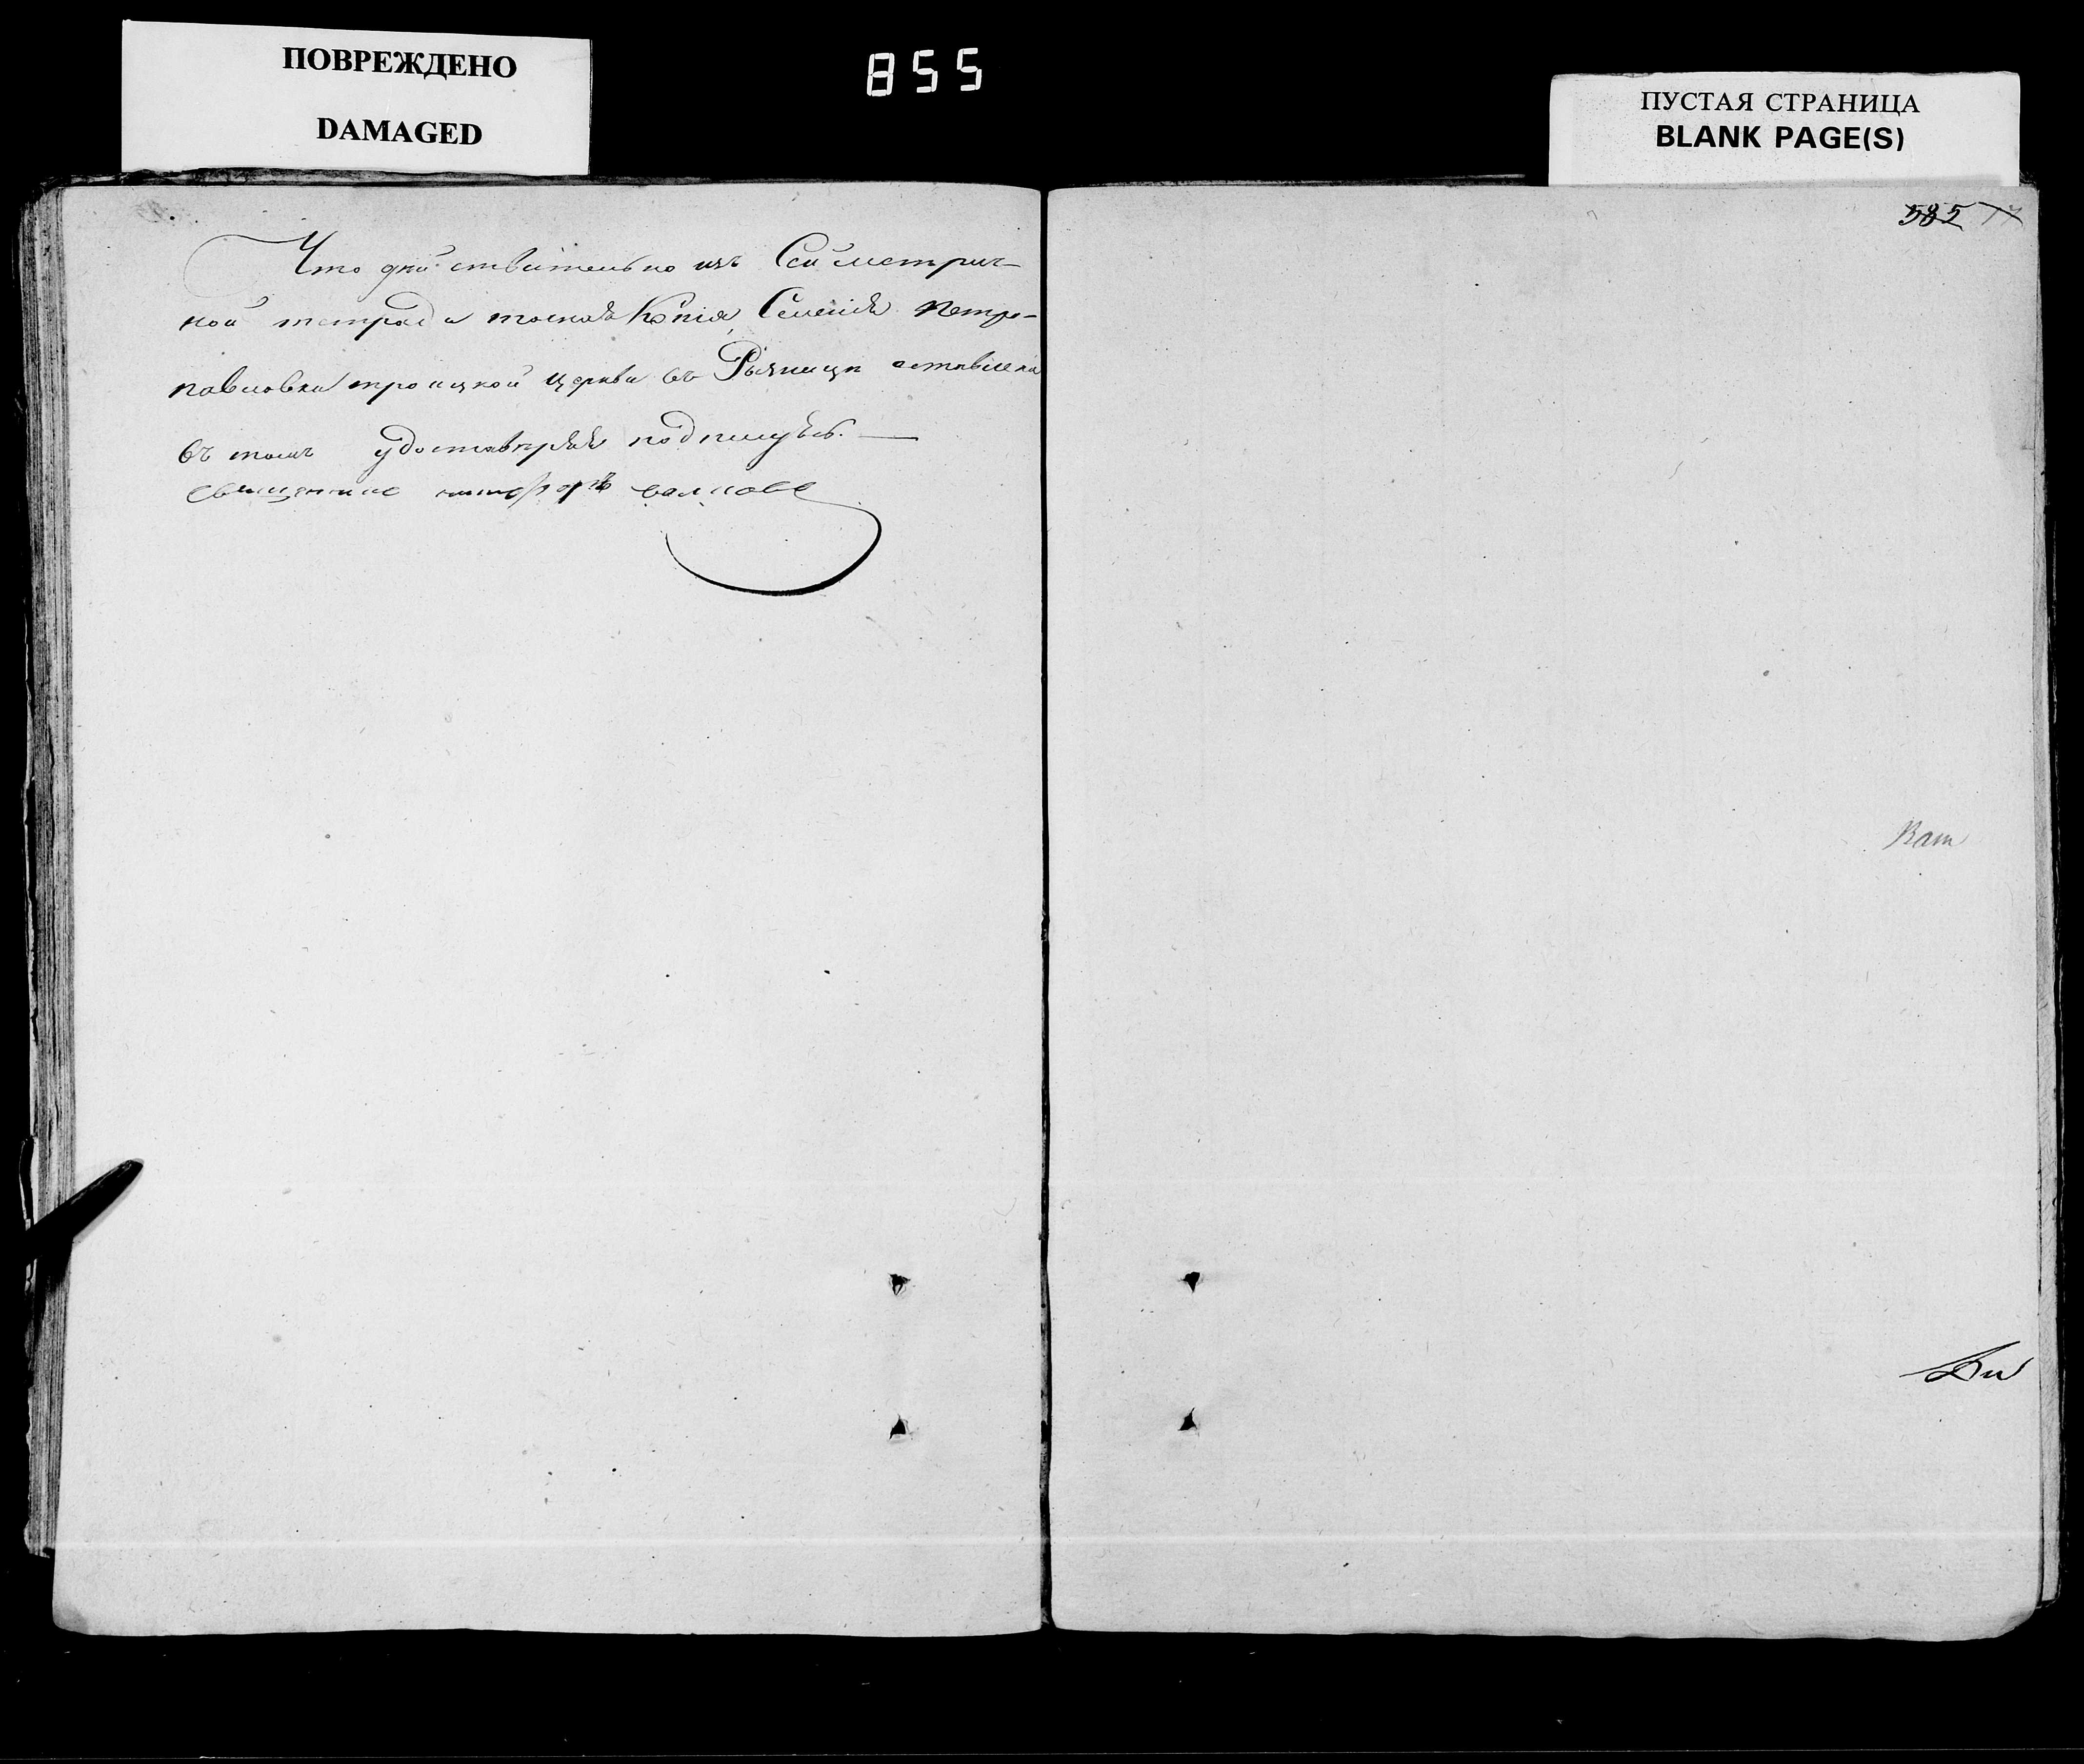 ПОВРЕЖДЕНО
DAMAGED
855
ПУСТАЯ СТРАНИЦА
BLANK PAGE(S)
585 17
Что действительно изъ Сей метрич-
ной тетради точная Копія, Селенія Петро-
павловки троицкой церкви въ Ризницы оставлена
въ томъ удоставѣряя подпишусь. —
священникъ